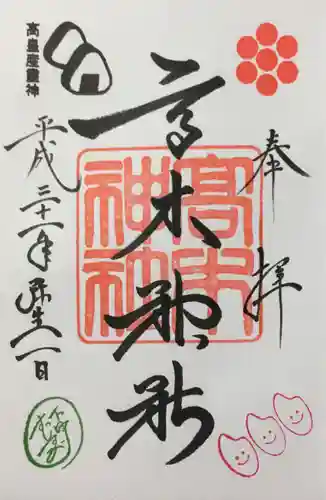 奉拝
高木神社
高木神社
平成三十一年弥生一日
高皇産霊神